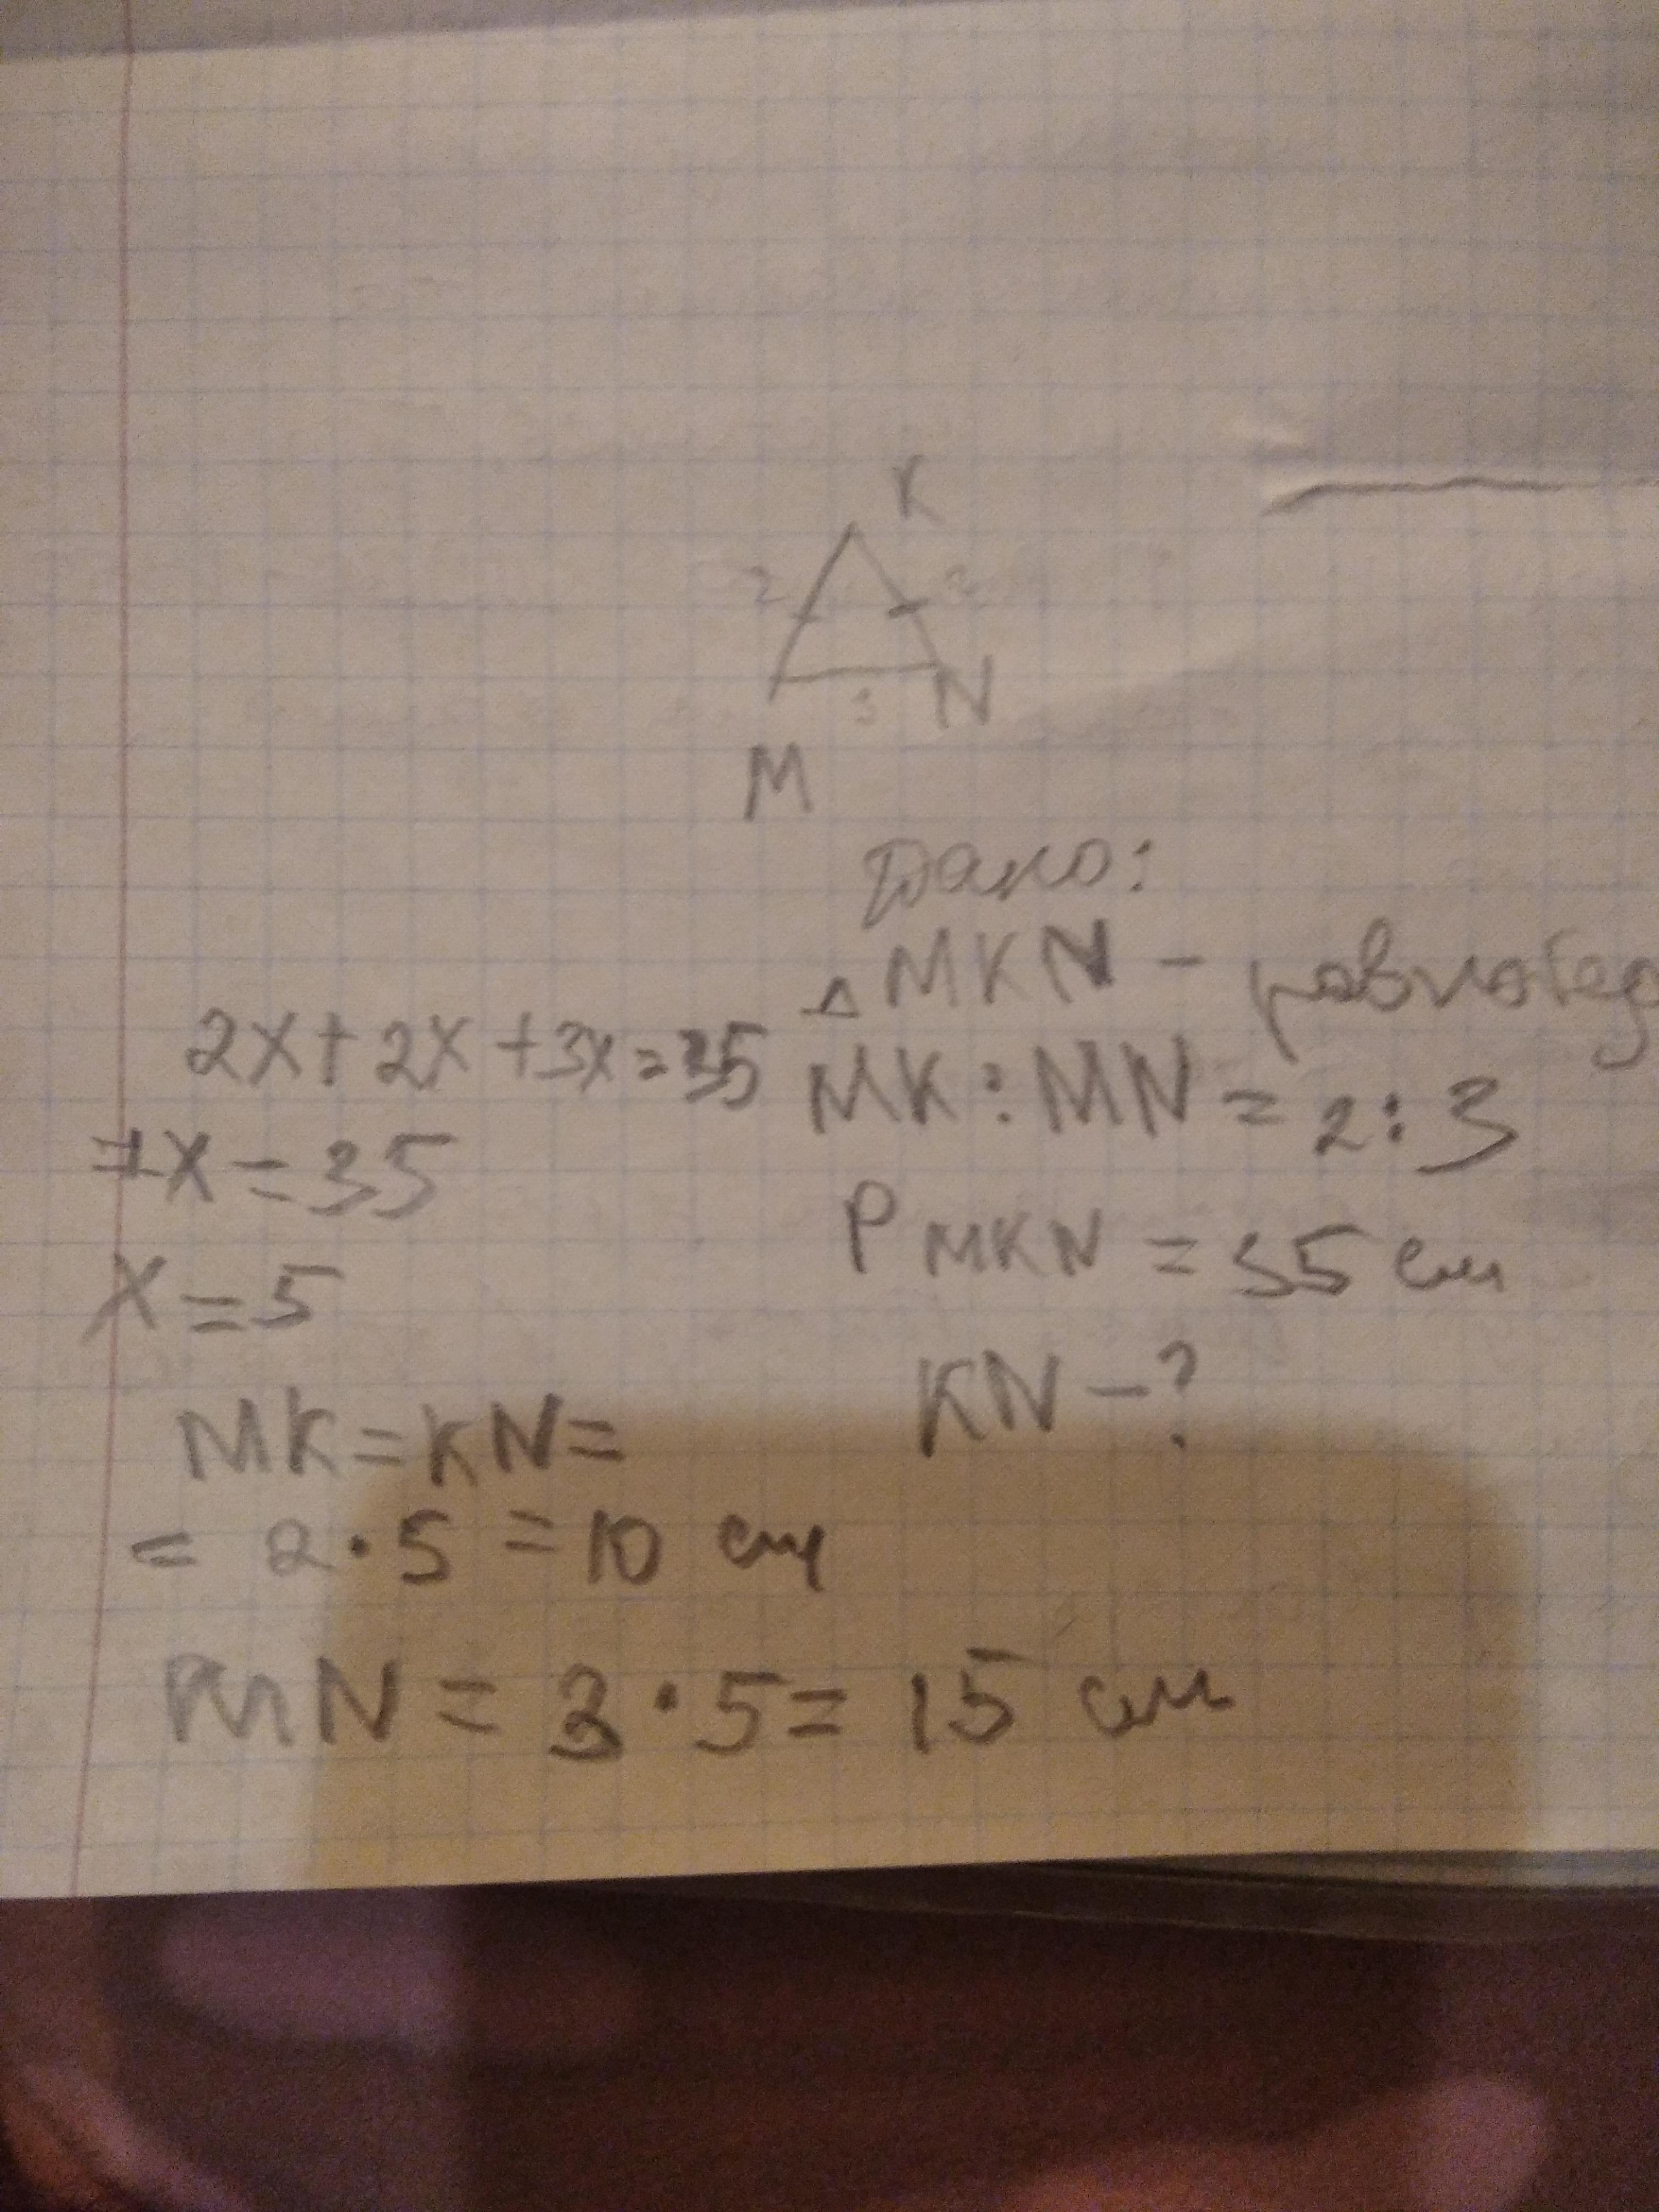 K
2 2
3 N
M
Дано:
△MKN - равнобед
2x+2x+3x=35
MK:MN=2:3
7x=35
P MKN = 35 см
x=5
KN-?
MK=KN=
= 2·5=10 см
MN=3·5=15 см